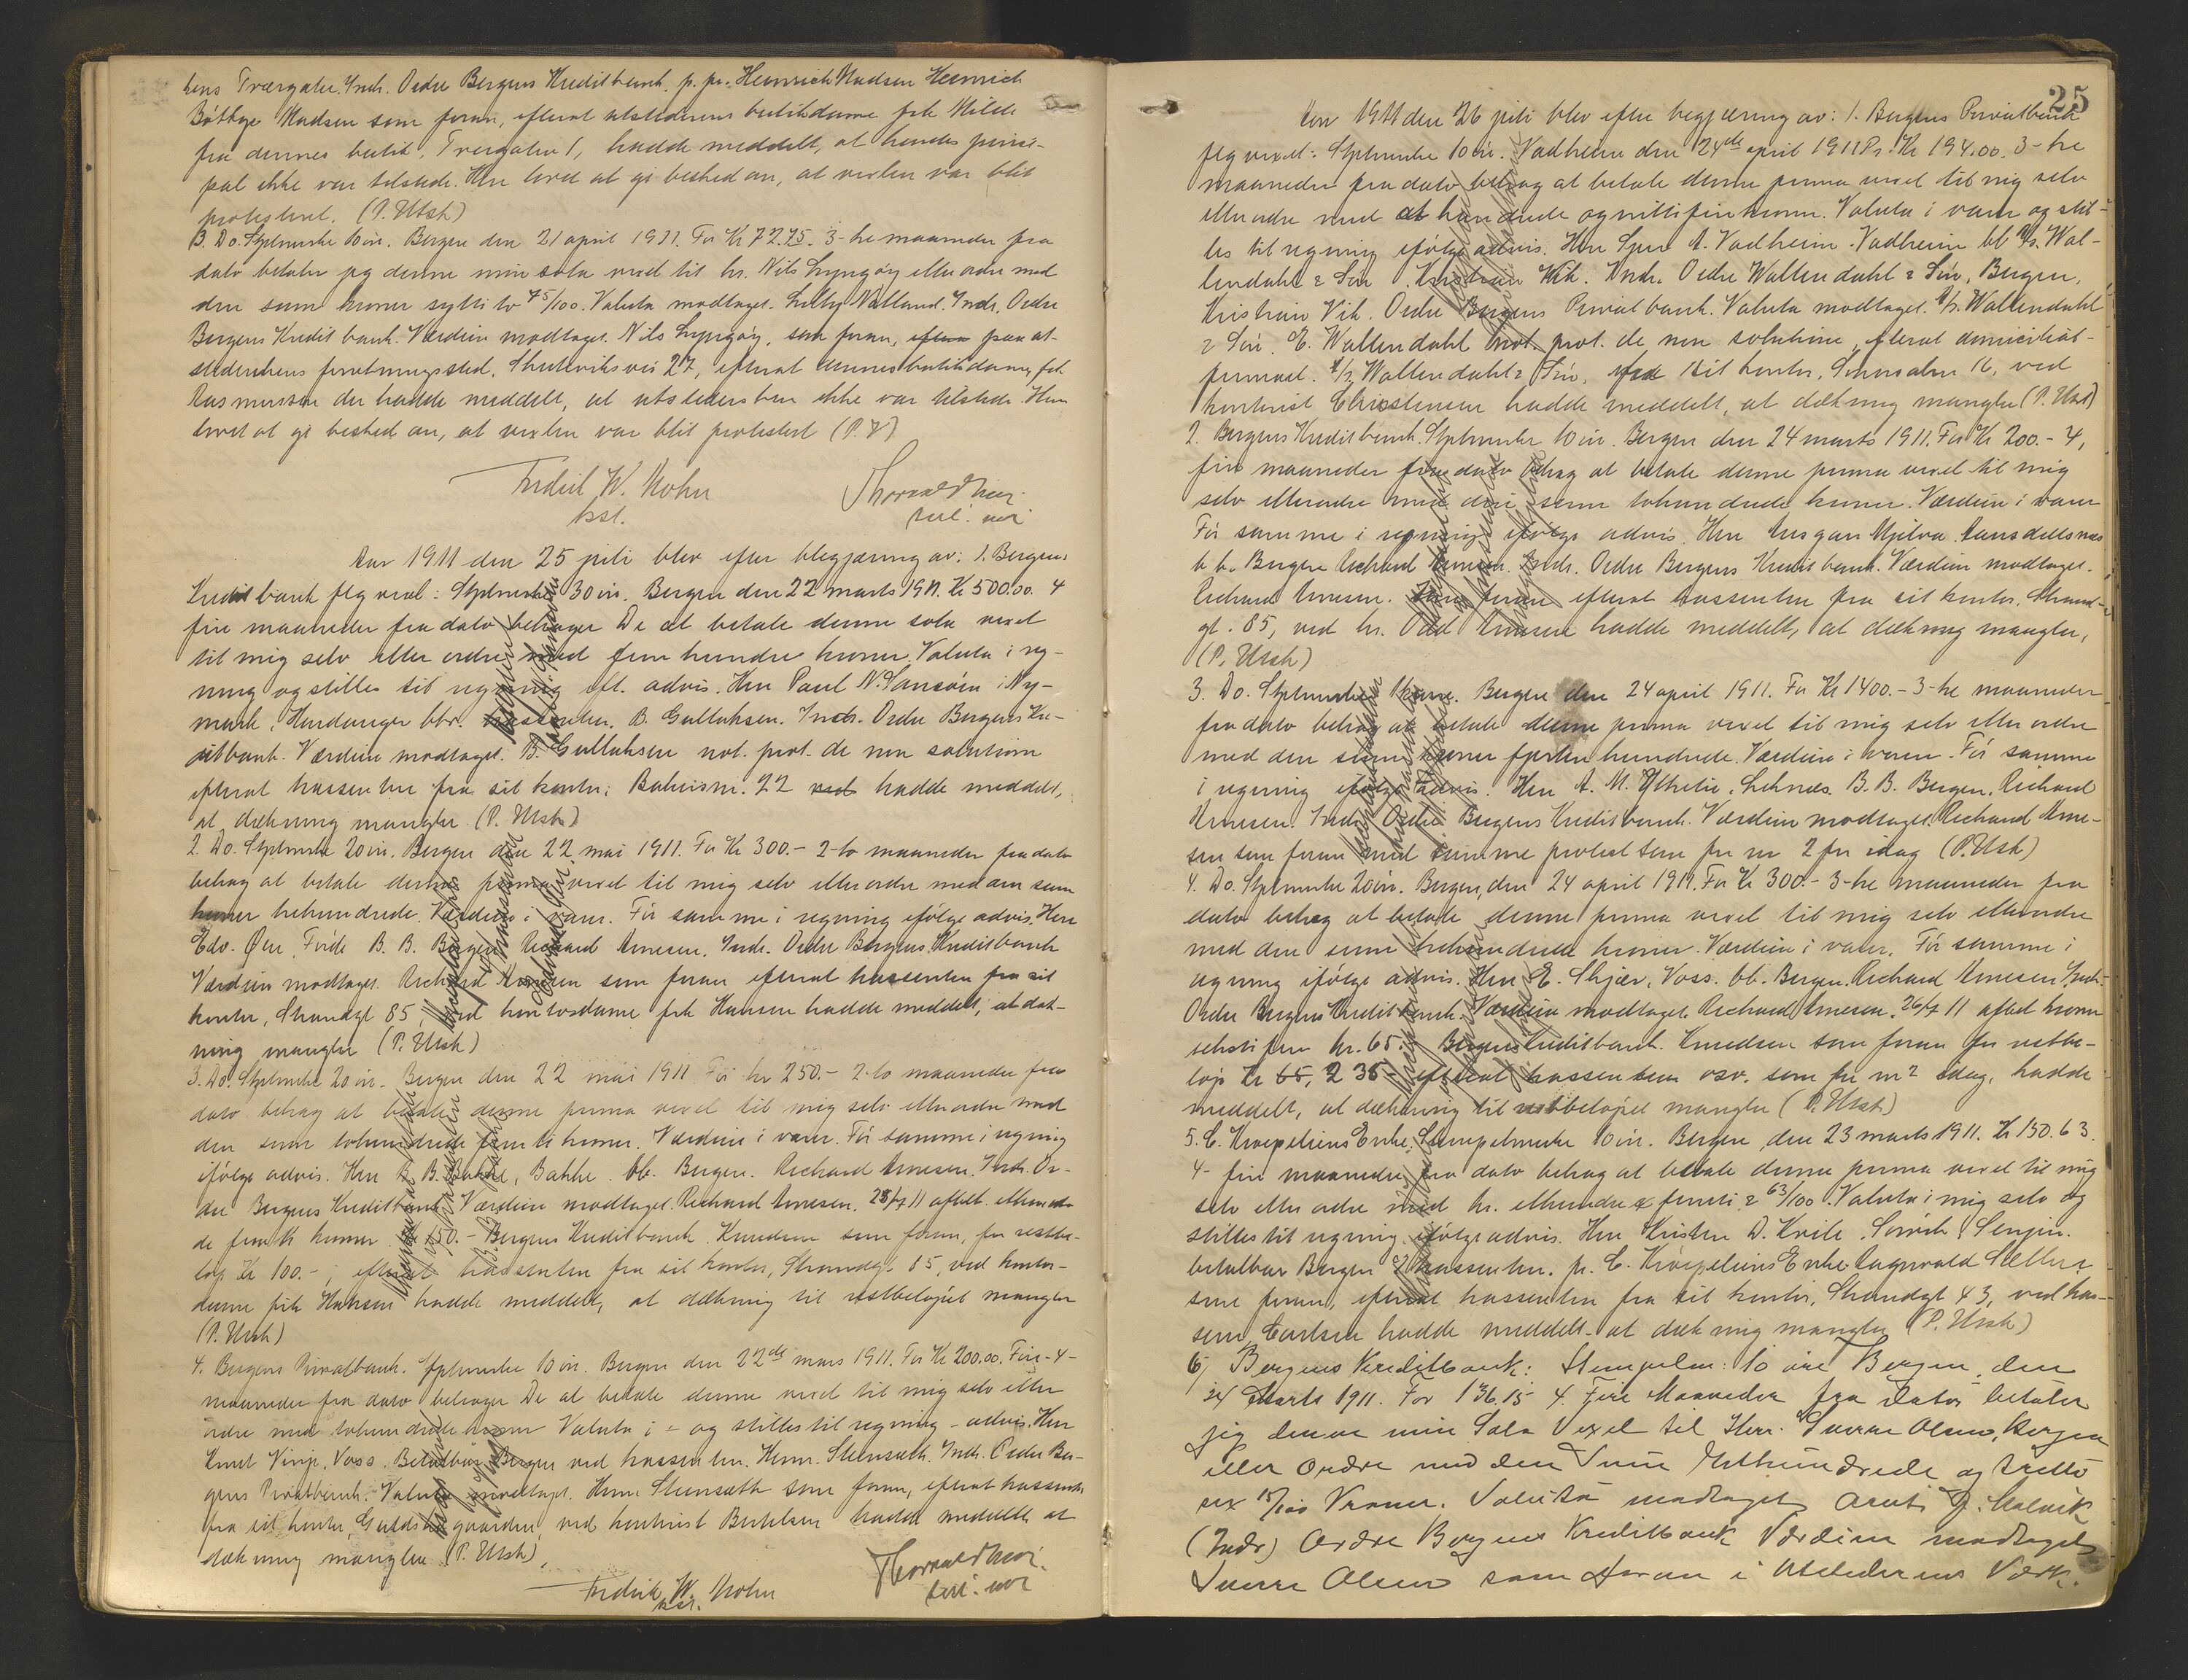 hens Tværgaten. Indr. Ordre Bergens Kreditbank. p. pr. Heinrich Madsen Heinrich
Böthge Madsen som foran, efterat utstederens butikdame frk Milde
fra dennes butik, Tvergaten 1, hadde meddelt, at hendes princi-
pal ikke var tilstede. Hun lovet at gi besked om, at vexlen var blit
protestert. (P. Utsk)
3. Do. Stplmerke 10 ør. Bergen den 21 april 1911. For Kr 72.75. 3-tre maaneder fra
dato betaler jeg denne min sola vexel til hr. Nils Lyngøy eller ordre med
den sum kroner sytti to 75/100. Valuta modtaget. Natland. Indr. Ordre
Bergens Kredit bank. Værdien modtaget. Nils Lyngøy, som foran, paa ut-
stederskens forretningssted, Skuteviksvei 27, efterat dennes butikdame, frk
Rasmussen der hadde meddelt, at utstedersken ikke var tilstede. Hun
lovet at gi besked om, at vexlen var blit protestert (P. V)
Fredrik W. Mohn
kst.
Aar 1911 den 25 juli blev efter begjæring av: 1. Bergens
Kredit bank flg vexel: Stplmerke 30 ør. Bergen den 22 marts 1911. Kr 500.00. 4
fire maaneder fra dato behager De at betale denne sola vexel
til mig selv eller ordre med fem hundre kroner. Valuta i reg-
ning og stilles til regning eft. advis. Herr Paul N. Sansøen i Ny-
mark, Hardanger bbr. trassenten. B. Gullaksen. Indr. Ordre Bergens Kre-
ditbank. Værdien modtaget. B. Gullaksen not. prot. de non solutione
efterat trassenten fra sit kontor, 22 ved hadde meddelt,
at dækning mangler (P. Utsk)
2. Do. Stplmerke 20 ør. Bergen den 22 mai 1911. For Kr 300.- 2-to maaneder fra dato
behag at betale denne prima vexel til mig selv eller ordre med den sum
kroner trehundrede. Værdien i varer. Før samme i regning ifølge advis. Herr
Edv. Øen, Förde B. B. Bergen Richard Arnesen. Indr. Ordre Bergens Kreditbank
Værdien modtaget. Richard Arnesen som foran efterat trassenten fra sit
kontor, Strandgt 85, ved kontordame frk Hansen hadde meddelt, at dæk-
ning mangler (P. Utsk)
3. Do. Stplmerke 20 ør. Bergen den 22 mai 1911 For kr 250.- 2-to maaneder fra
dato behag at betale denne prima vexel til mig selv eller ordre med
den sum tohundrede femti kroner. Værdien i varer. Før samme i regning
ifølge advis. Herr B. B. Bakke, Bakke. bb. Bergen. Richard Arnesen. Indr. Or-
dre Bergens Kreditbank Værdien modtaget. Richard Arnesen. 25/7 11 afbet. ethundre-
de femti kroner kr 150.- Bergens Kreditbank. Knudsen som foran, for restbe-
løp Kr 100.-, efterat trassenten fra sit kontor, Strandgt 85, ved kontor-
dame frk Hansen hadde meddelt, at dækning til restbeløpet mangler
(P. Utsk)
4. Bergens Privatbank. Stplmerke 10 ør. Bergen den 22de mars 1911. For Kr 200.00. Fire-4-
maaneder fra dato behager De at betale denne vexel til mig selv eller
ordre med tohundrede kroner Valuta i - og stilles til regning - advis. Herr
Knut Vinje. Voss. Betalbar Bergen ved trassenten. Henr. Steensæth. Indr. Ordre Ber-
gens Privatbank. Valuta modtaget. Henr. Steensæth som foran, efterat trassenten
fra sit kontor, gaarden, ved kontorist Bertelsen hadde meddelt at
dækning mangler (P. Utsk).
Fredrik W. Mohn
kst.
25
Aar 1911 den 26 juli blev efter begjæring av: 1. Bergens Privatbank
flg vexel: Stplmerke 10 ør. Vadheim den 24de april 1911 Pr. Kr 194.00. 3-tre
maaneder fra dato behag at betale denne prima vexel til mig selv
eller ordre med et hundrede og nitti fire kroner. Valuta i varer og stil-
les til regning ifølge advis. Herr Sjur A. Vadheim. Vadheim bb A/s. Wal-
lendahl & Søn. Kristian Vik. Indr. Ordre Wallendahl & Søn, Bergen,
Kristian Vik. Ordre Bergens Privat bank. Valuta modtaget. A/s. Wallendahl
& Søn. E. Wallendahl not. prot. de non solutione, efterat domiciliat-
firmaet. A/s Wallendahl & Søn, fra sit kontor, 16, ved
kontorist Christensen hadde meddelt, at dækning mangler (P. Utsk)
2. Bergens Kreditbank. Stplmerke 10 ør. Bergen den 24 marts 1911. For Kr 200.- 4,
fire maaneder fra dato behag at betale denne prima vexel til mig
selv eller ordre med den sum tohundrede kroner. Værdien i varer
Før samme i regning ifølge advis. Herr Ansgar Mjelva. Aansdalsnæs
b b. Bergen Richard Arnesen. Indr. Ordre Bergens Kredit bank. Værdien modtaget.
Richard Arnesen. Som foran efterat trassenten fra sit kontor. Strand-
gt. 85, ved hr. Odd Arnesen hadde meddelt, at dækning mangler,
(P. Utsk)
3. Do. Stplmerke 1 krone. Bergen den 24 april 1911. For Kr 1400.- 3-tre maaneder
fra dato behag at betale denne prima vexel til mig selv eller ordre
med den sum kroner fjorten hundrede. Værdien i varer. Før samme
i regning ifølge advis. Herr A. M. Ytrelie. B. B. Bergen. Richard
Arnesen. Indr. Ordre Bergens Kreditbank. Værdien modtaget. Richard Arne-
sen som foran med samme protest som for nr 2 for idag (P. Utsk)
4. Do. Stplmerke 20 ør. Bergen, den 24 april 1911. For Kr 300.- 3-tre maaneder fra
dato behag at betale denne prima vexel til mig selv eller ordre
med den sum trehundrede kroner. Værdien i varer. Før samme i
regning ifølge advis. Herr E. Skjær, Voss. bb. Bergen. Richard Arnesen. Indr.
Ordre Bergens Kreditbank. Værdien modtaget. Richard Arnesen. 26/7 11 afbet kroner
sekstifem kr. 65.- Bergens Kreditbank. Knudsen som foran for restbe-
løp kr 65, 235.- efterat trassenten osv. som for nr 2 idag, hadde
meddelt, at dækning til restbeløpet mangler (P. Utsk)
5. C. Kroepeliens Enke. Stempelmerke 10 ør. Bergen, den 23 marts 1911. Kr 150.63.
4- fire maaneder fra dato behag at betale denne prima vexel til mig
selv eller ordre med kr. ethundre & femti & 63/100. Valuta i mig selv og
stilles til regning ifølge advis. Herr Kristen D. Kvile.
betalbar Bergen trassenten. pr. C. Kroepeliens Enke Ragnvald
som foran, efterat trassenten fra sit kontor, Strandgt 43, ved kas-
serer Carlsen hadde meddelt at dækning mangler (P. Utsk)
6, Bergens Kreditbank: Stempelm: 10 øre Bergen, den
24 Marts 1911. For 136.15 4. Fire Maaneder fra Dato betaler
jeg denne min Sola Vexel til Herr. Sverre Olsen, Bergen
eller Ordre med den Sum Et hundrede og tretti
sex 15/100 Kroner. Valuta modtaget
(Indr) Ordre Bergens Kreditbank Værdien modtaget
Sverre Olsen som foran i Utstederens Værk.